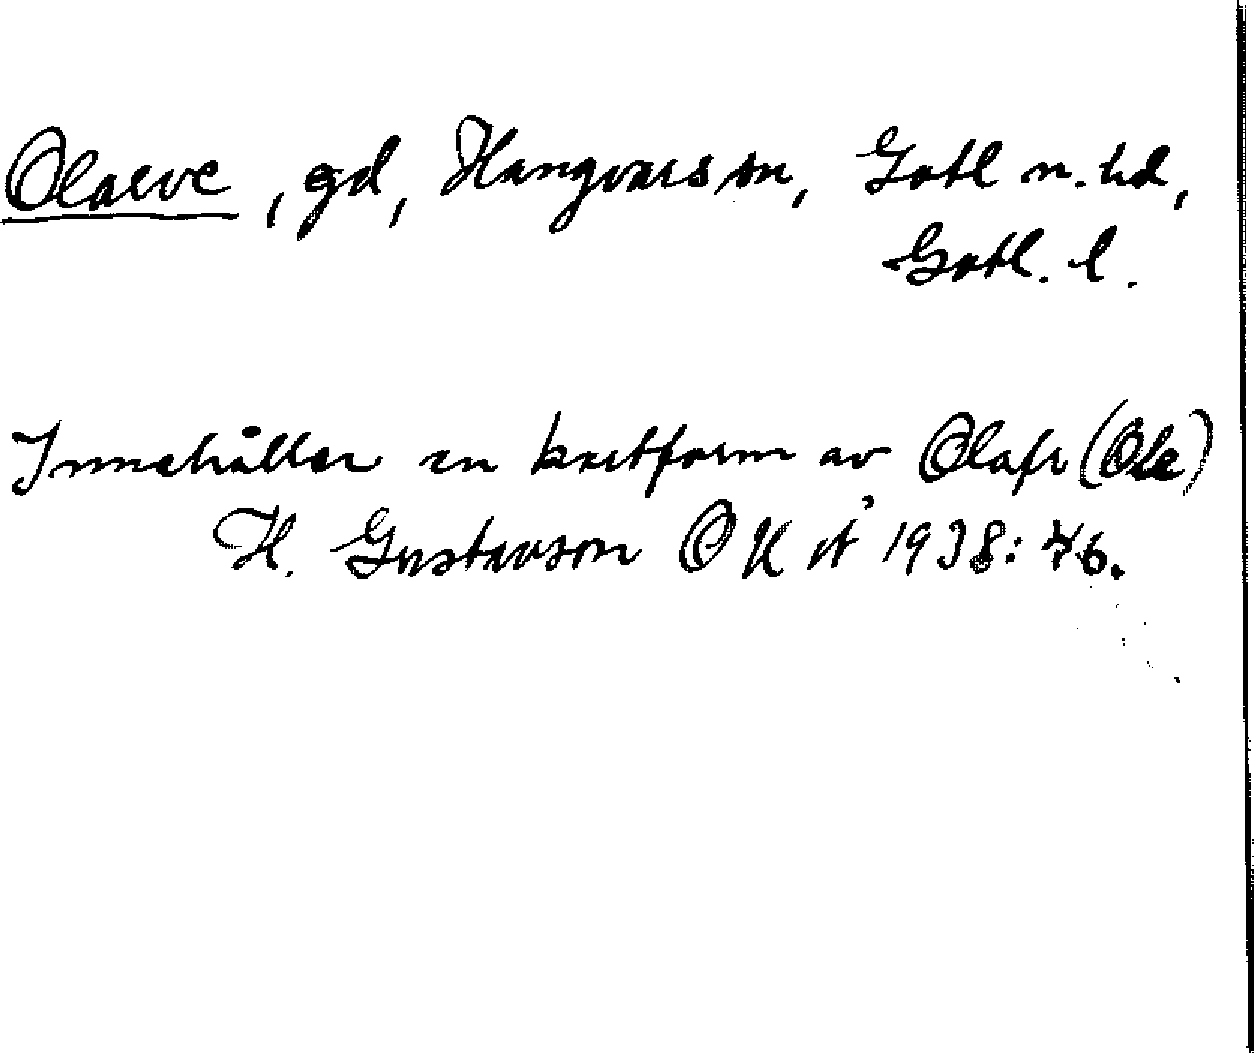 Olarve, gd, Hangvars sn, Gotl n. hd,
Gotl. l.
Innehåller en kortform av Olafr (Ole)
H. Gustavson OK Å 1938: 46.